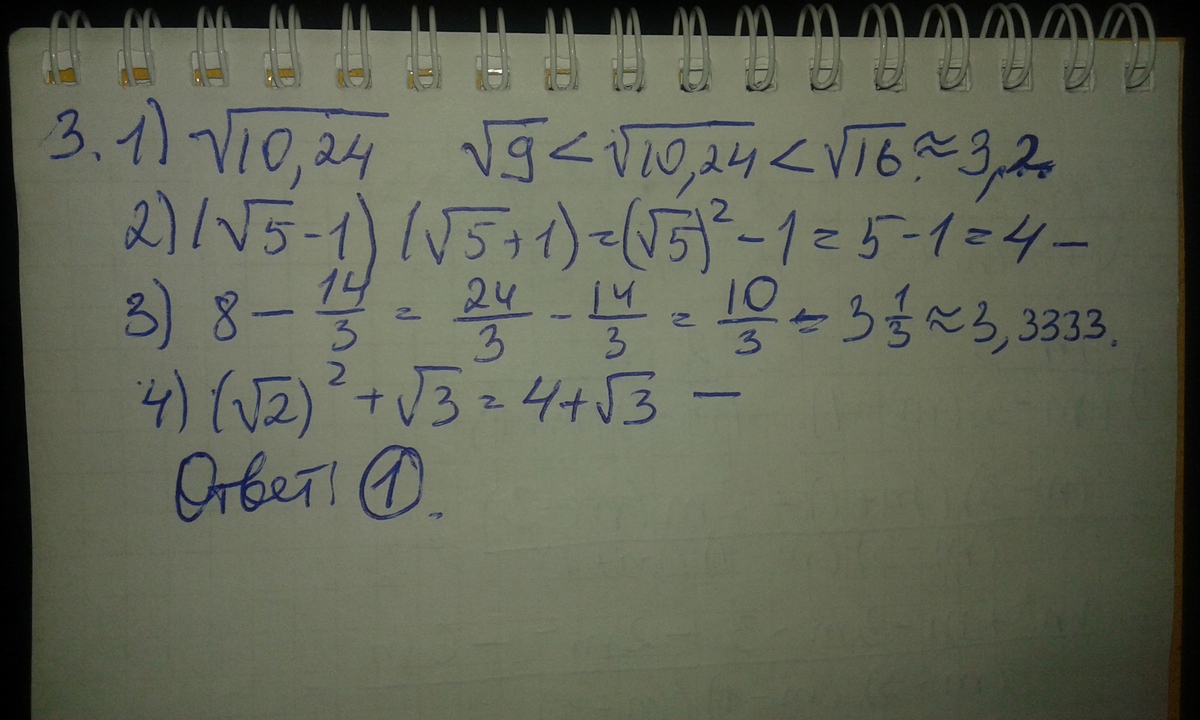 3. 1) √10,24    √9 < √10,24 < √16. ≈ 3,2.
2) (√5 - 1) (√5 + 1) = (√5)² - 1 = 5 - 1 = 4 —
3) 8 - 14/3 = 24/3 - 14/3 = 10/3 = 3 1/3 ≈ 3,3333.
4) (√2)² + √3 = 4 + √3 —
Ответ: 1.